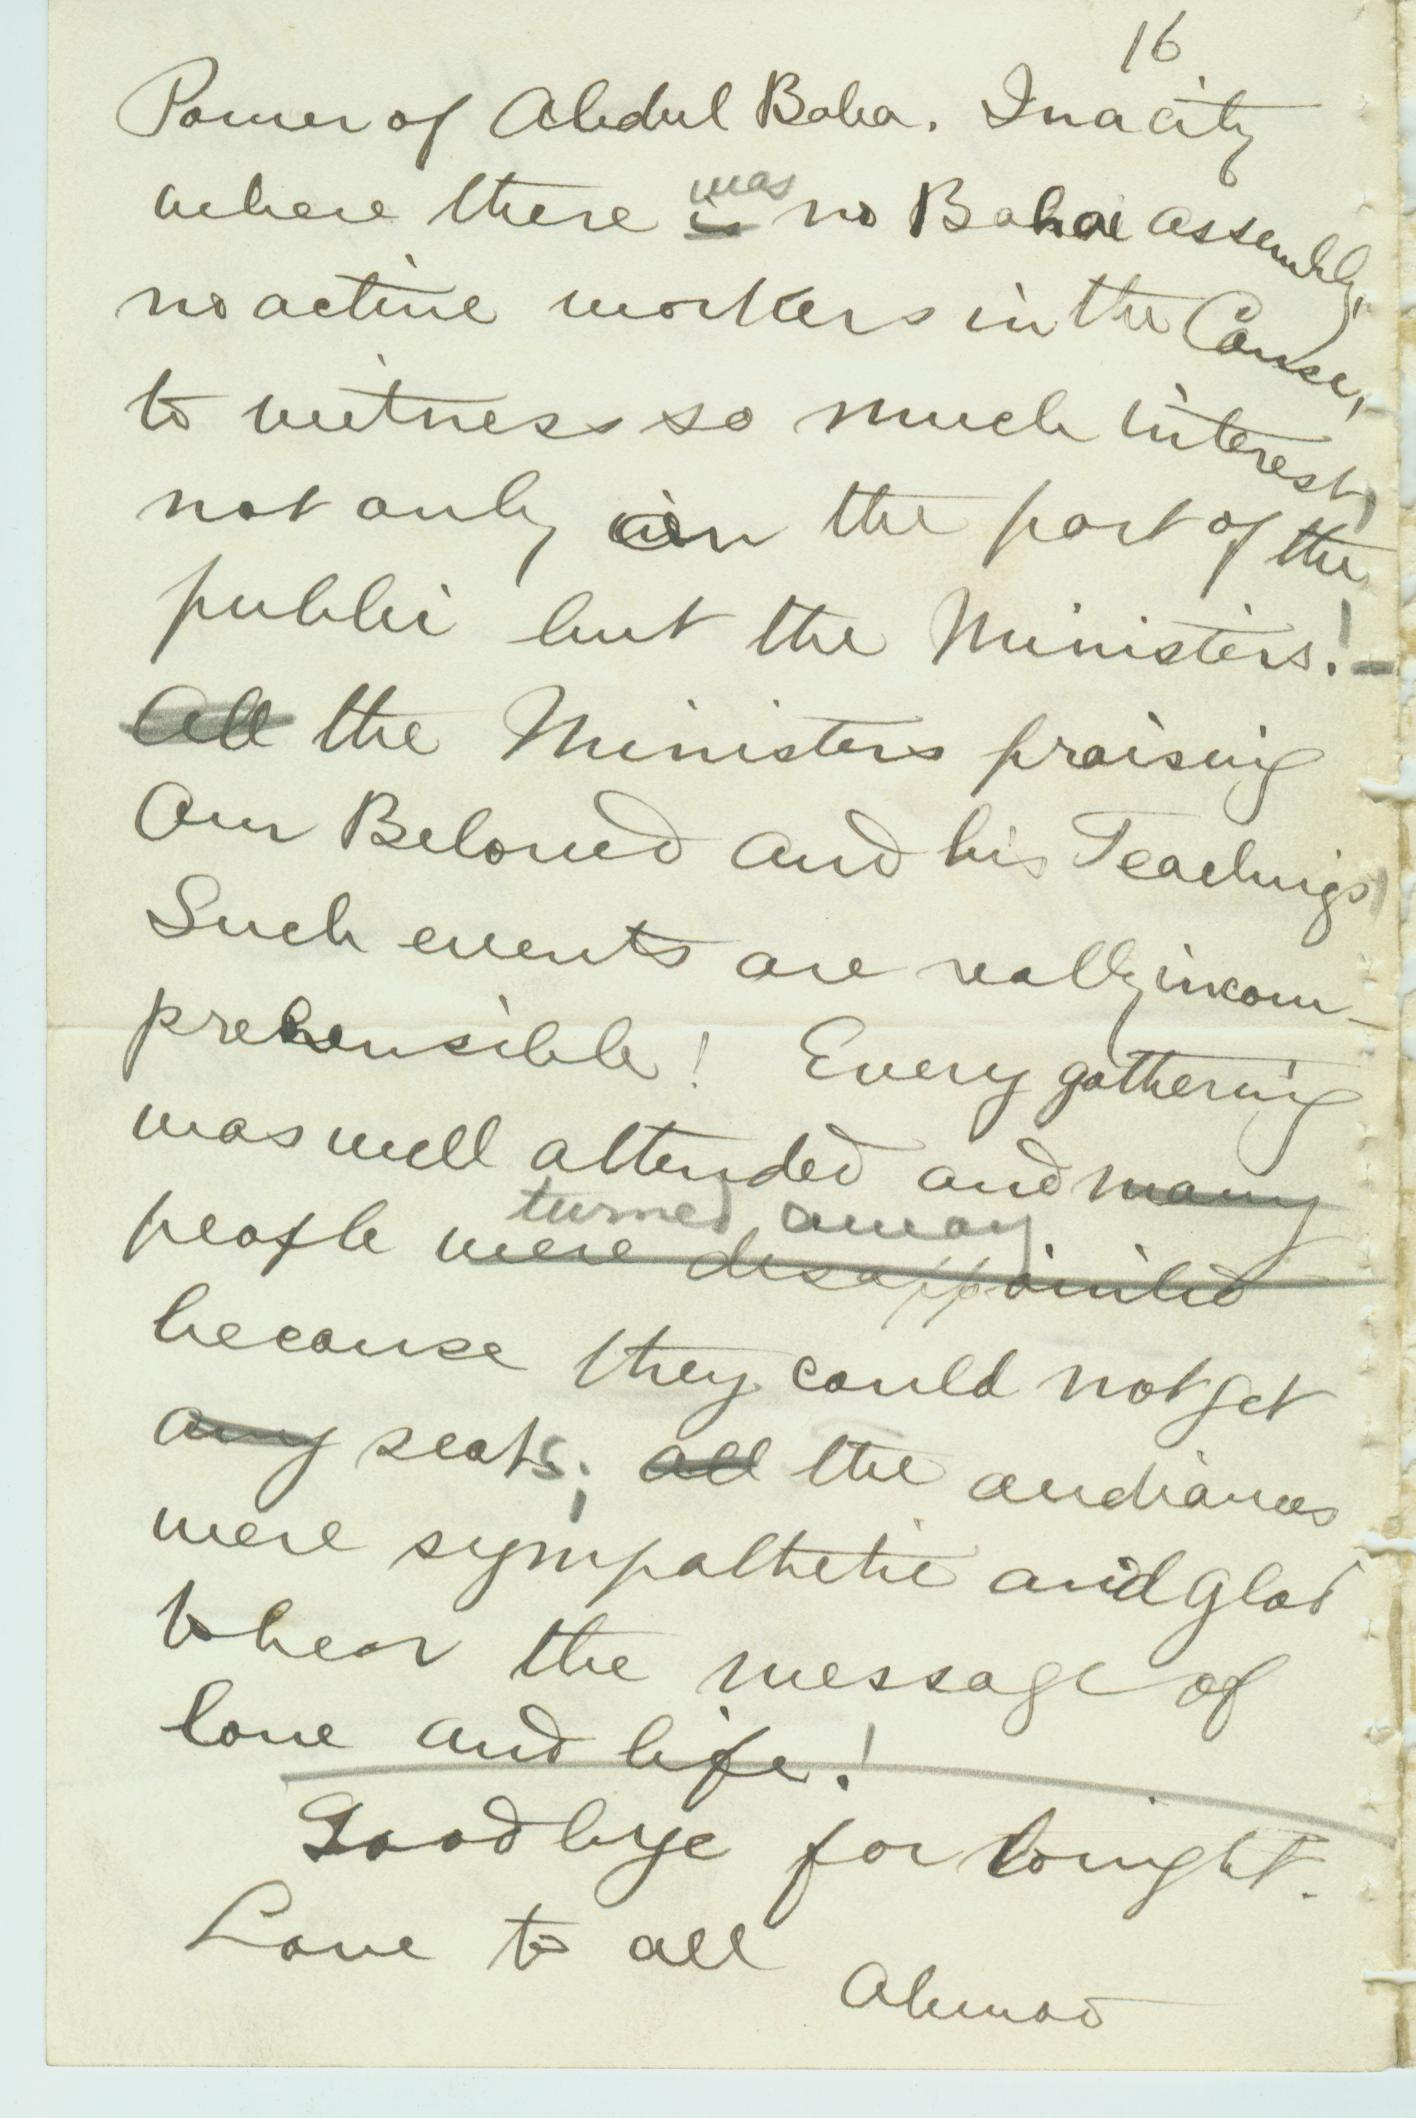 16
Power of Abdul Baha. In a city
where there ~~is~~ was no Bahai assembly,
no active workers in the Cause,
to witness so much interest,
not only on the part of the
public but the Ministers! –
~~All~~ the Ministers praising
Our Beloved and his Teachings!
Such events are really incom-
prehensible! Every gathering
was well attended and ~~many~~
turned away
people ~~were disappointed~~
because they could not get
~~any~~ seats; ~~all~~ the audiances
were sympathetic and glad
to hear the message of
love and life!
Goodbye for tonight.
Love to all
Ahmad